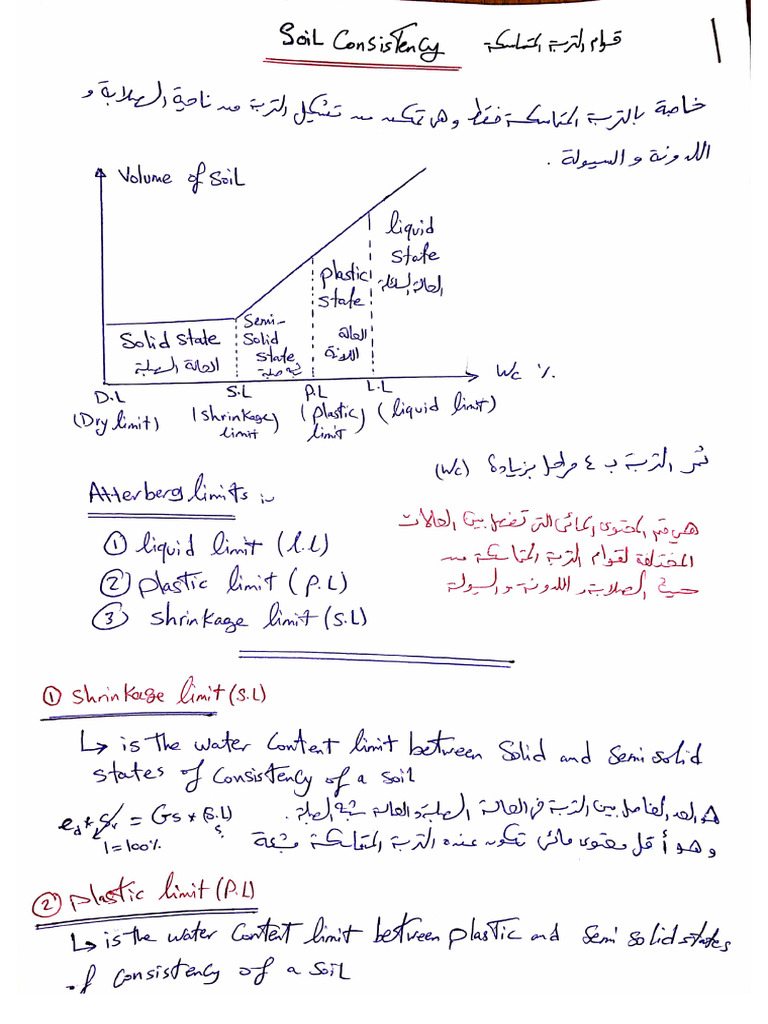 Soil Consistency قوام التربة المتماسكة
1
خاصة بالتربة المتماسكة فقط وهي تمكنه من تشكيل التربة من ناحية الصلابة و
اللدونة و السيولة .
Volume of Soil
liquid
state
الحالة السائلة
plastic
state
الحالة
اللدنة
Semi-
Solid
state
شبه صلبة
Solid state
الحالة الصلبة
Wc %
D.L
(Dry limit)
S.L
(shrinkage)
limit
P.L
(plastic)
limit
L.L
(liquid limit)
تمر التربة ب ٤ مراحل بزيادة (Wc)
Atterberg limits :-
① liquid limit (l.L)
② plastic limit (P.L)
③ shrinkage limit (S.L)
هي قيم المحتوى المائي التي تفصل بين الحالات
المختلفة لقوام التربة المتماسكة من
حيث الصلابة و اللدونة و السيولة
① Shrinkage limit (S.L)
↳ is the water Content limit between Solid and Semi solid
states of Consistency of a soil
هو الحد الفاصل بين التربة في الحالة الصلبة والحالة شبه الصلبة .
ed * Sr = Gs * (S.L)
1=100% ؟
وهو أقل محتوى مائي تكون عنده التربة المتماسكة مشبعة
② plastic limit (P.L)
↳ is the water Content limit between plastic and Semi solid states
of Consistency of a soil